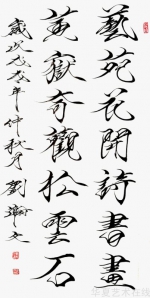 藝苑花開詩書畫
黃嶽奇觀松雲石
歲次戊戌年仲秋月劉瀚文
华夏艺术在线